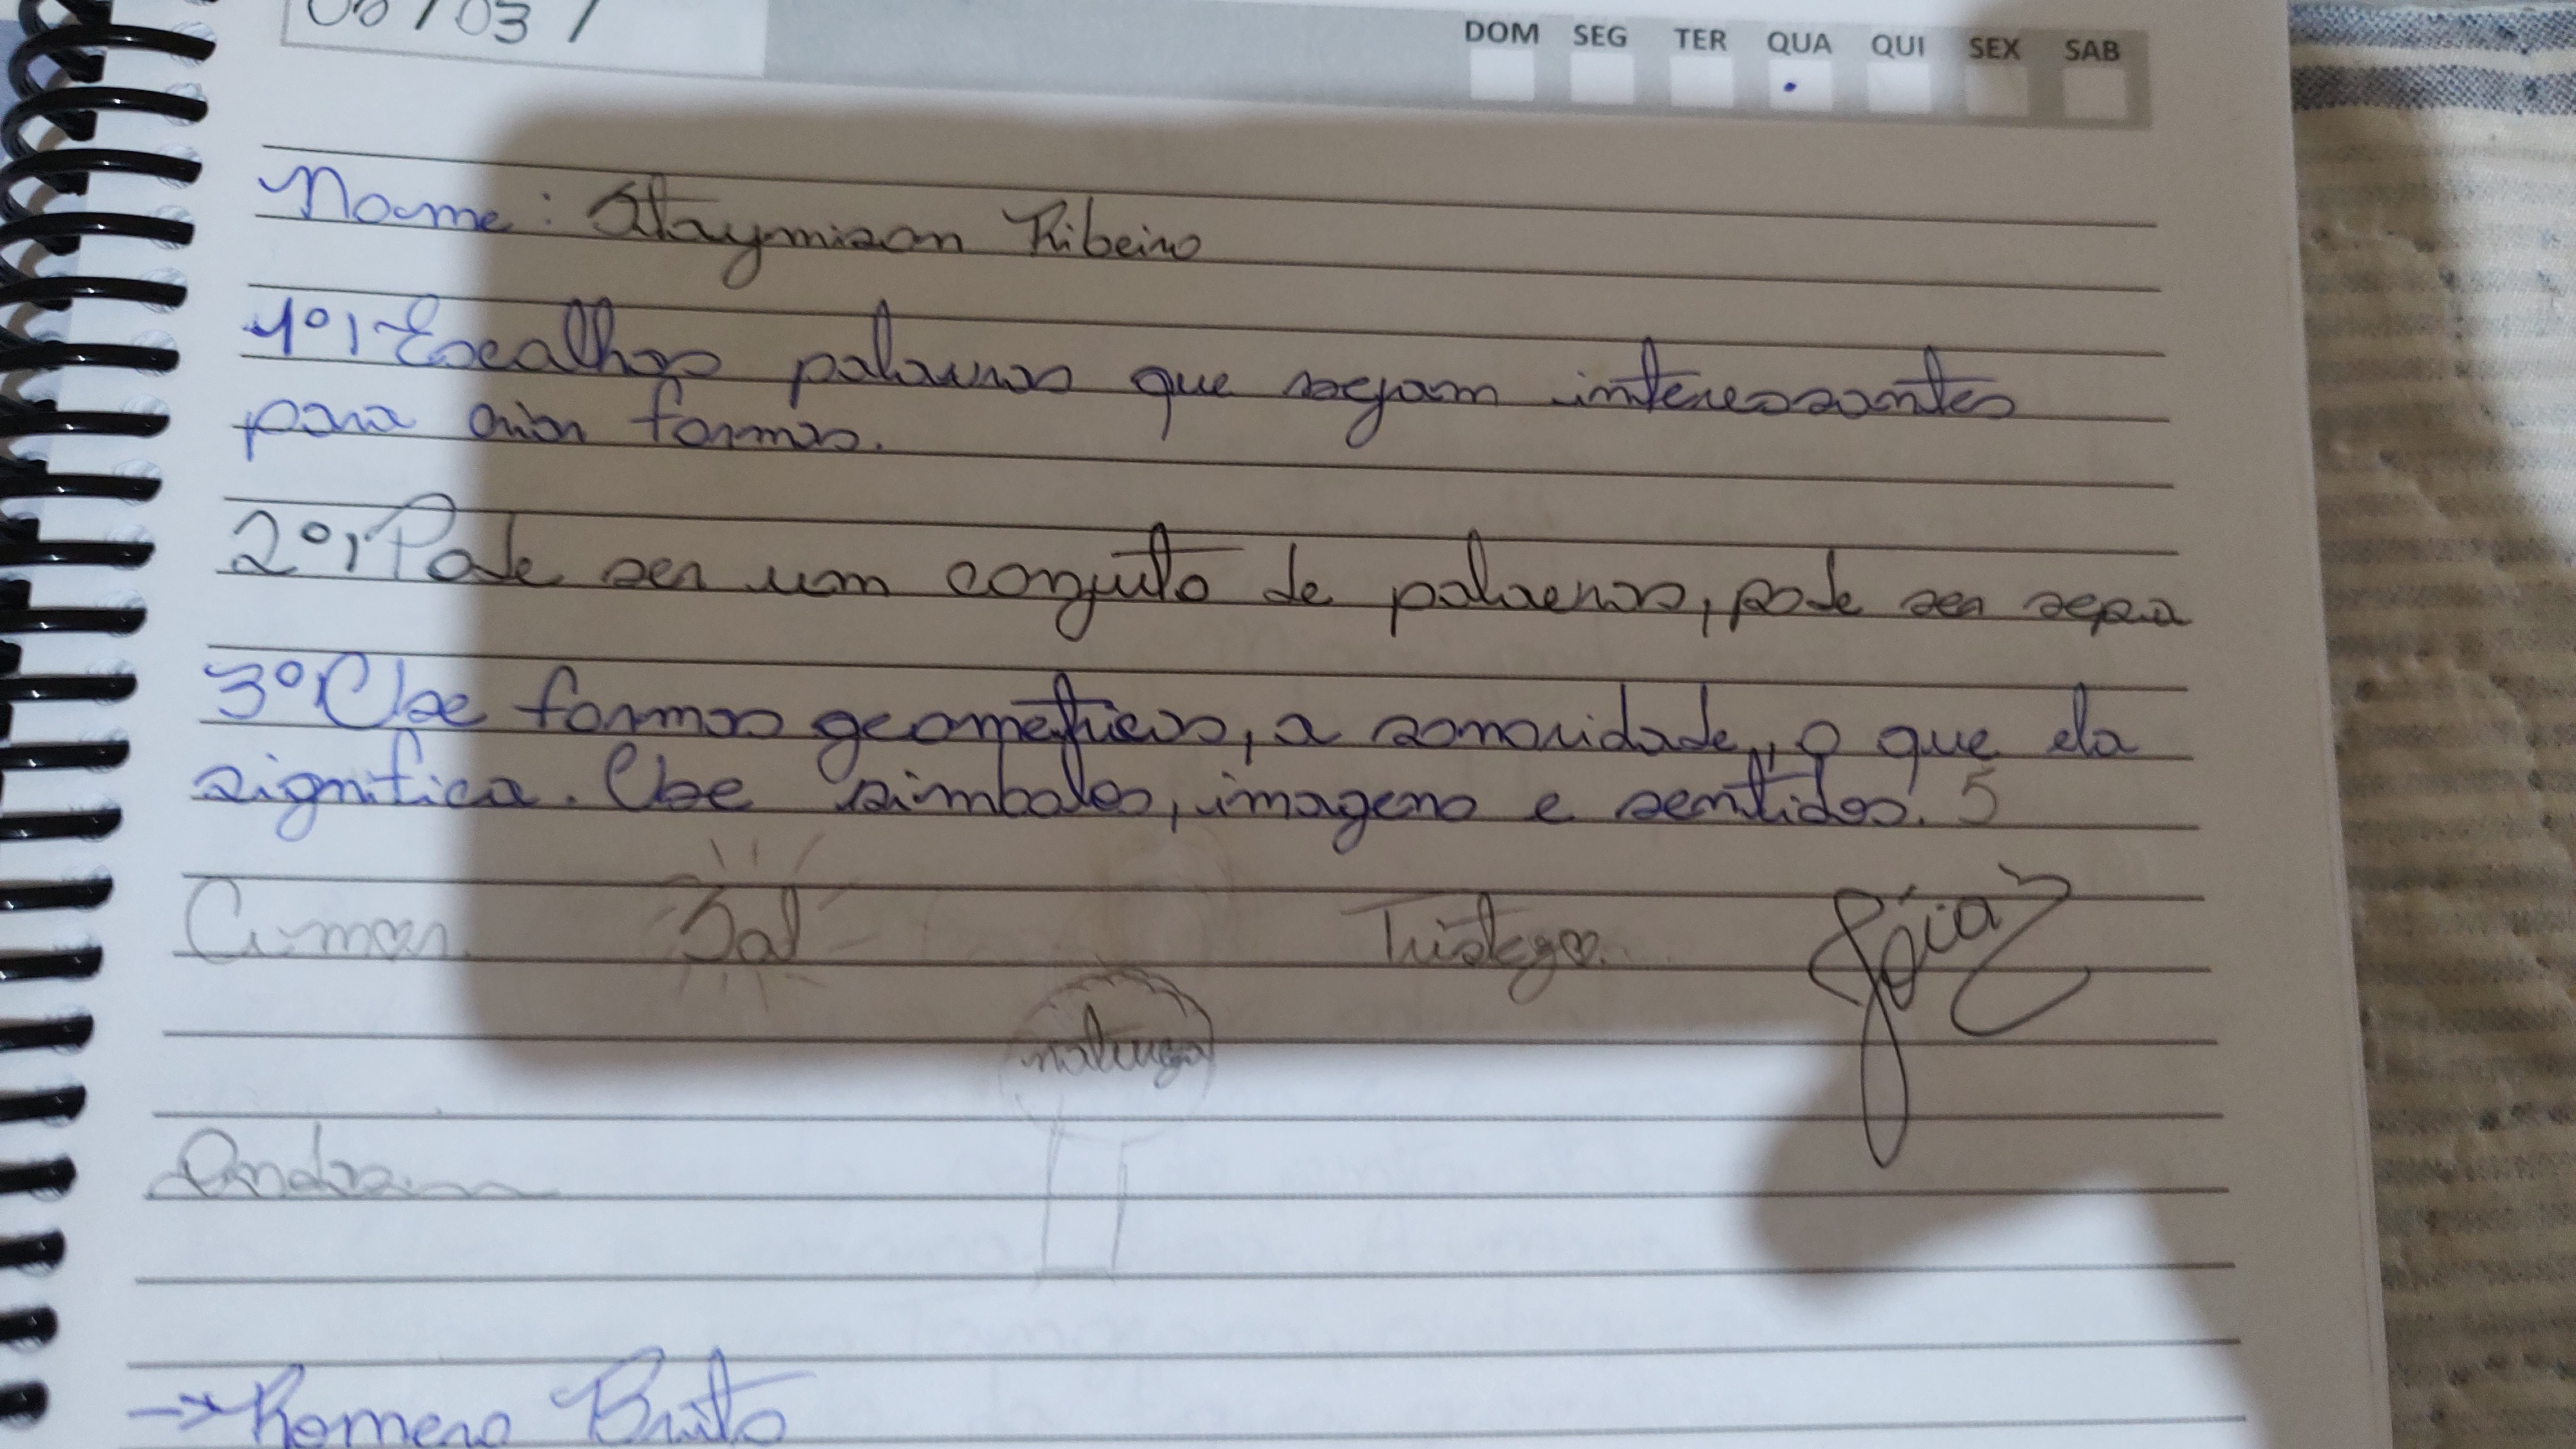 06/03/
DOM SEG TER QUA QUI SEX SAB
Nome: Staymison Ribeiro
1º) Escalhas palavras que sejam interessantes
para criar formas.
2º) Pode ser um conjuto de palavras, pode ser sepa
3º) Use formas geométricas, a sonoridade, o que ela
significa. Use simbolos, imagens e sentidos. 5
Amor Sol
natureza
→ Romero Britto